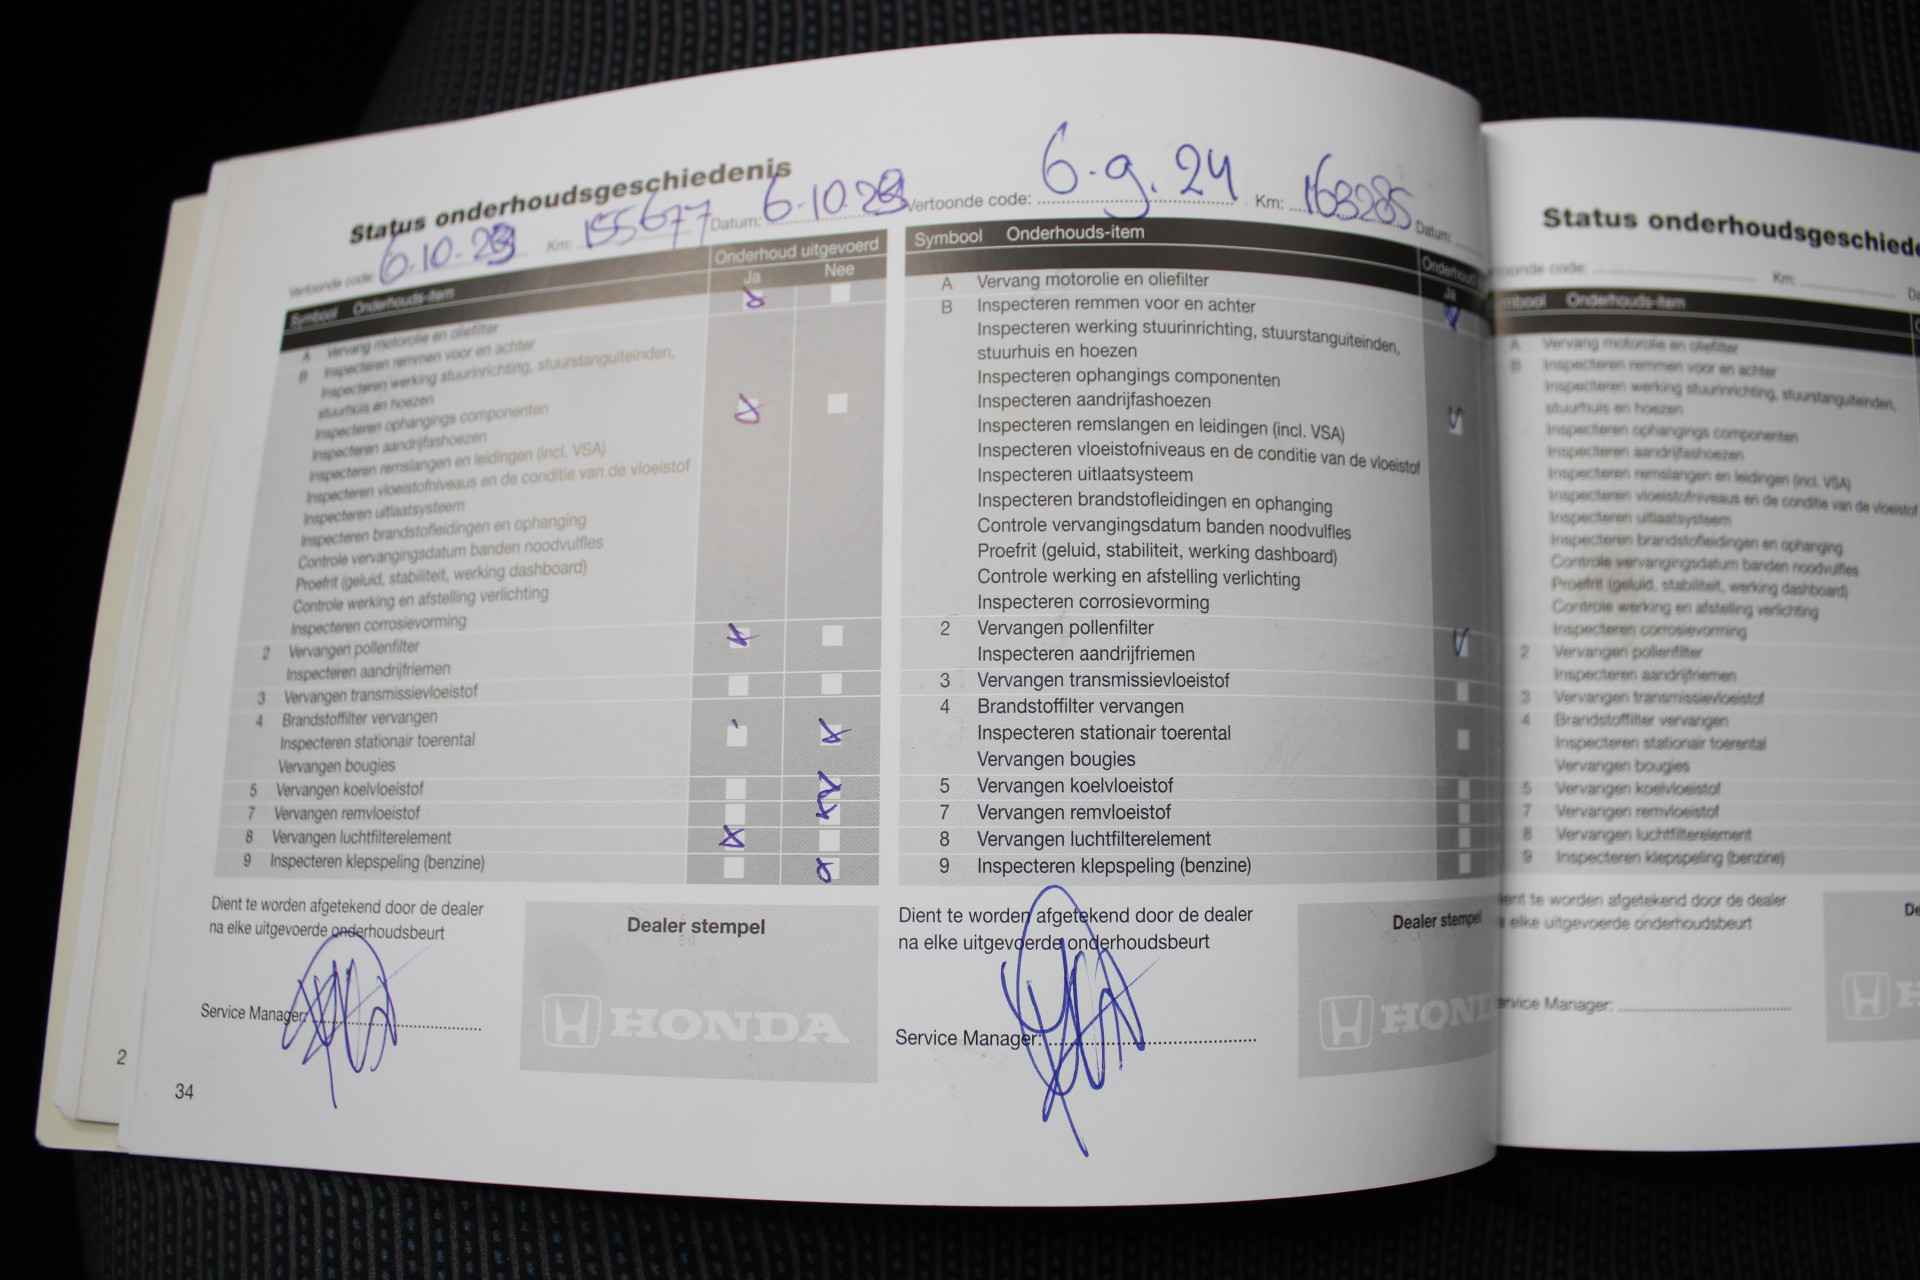 Status onderhoudsgeschiedenis
Vertoonde code: 6.10.23 Km: 155677 Datum: 6.10.23
Symbool Onderhouds-item Onderhoud uitgevoerd
Ja Nee
A Vervang motorolie en oliefilter
B Inspecteren remmen voor en achter
Inspecteren werking stuurinrichting, stuurstanguiteinden,
stuurhuis en hoezen
Inspecteren ophangings componenten
Inspecteren aandrijfashoezen
Inspecteren remslangen en leidingen (incl. VSA)
Inspecteren vloeistofniveaus en de conditie van de vloeistof
Inspecteren uitlaatsysteem
Inspecteren brandstofleidingen en ophanging
Controle vervangingsdatum banden noodvulfles
Proefrit (geluid, stabiliteit, werking dashboard)
Controle werking en afstelling verlichting
Inspecteren corrosievorming
2 Vervangen pollenfilter
Inspecteren aandrijfriemen
3 Vervangen transmissievloeistof
4 Brandstoffilter vervangen
Inspecteren stationair toerental
Vervangen bougies
5 Vervangen koelvloeistof
7 Vervangen remvloeistof
8 Vervangen luchtfilterelement
9 Inspecteren klepspeling (benzine)
Dient te worden afgetekend door de dealer
na elke uitgevoerde onderhoudsbeurt
Dealer stempel
HONDA
Service Manager:
2
34
Vertoonde code: 6.9.24 Km: 163285 Datum:
Symbool Onderhouds-item Onderhoud
Ja
A Vervang motorolie en oliefilter
B Inspecteren remmen voor en achter
Inspecteren werking stuurinrichting, stuurstanguiteinden,
stuurhuis en hoezen
Inspecteren ophangings componenten
Inspecteren aandrijfashoezen
Inspecteren remslangen en leidingen (incl. VSA)
Inspecteren vloeistofniveaus en de conditie van de vloeistof
Inspecteren uitlaatsysteem
Inspecteren brandstofleidingen en ophanging
Controle vervangingsdatum banden noodvulfles
Proefrit (geluid, stabiliteit, werking dashboard)
Controle werking en afstelling verlichting
Inspecteren corrosievorming
2 Vervangen pollenfilter
Inspecteren aandrijfriemen
3 Vervangen transmissievloeistof
4 Brandstoffilter vervangen
Inspecteren stationair toerental
Vervangen bougies
5 Vervangen koelvloeistof
7 Vervangen remvloeistof
8 Vervangen luchtfilterelement
9 Inspecteren klepspeling (benzine)
Dient te worden afgetekend door de dealer
na elke uitgevoerde onderhoudsbeurt
Dealer stempel
HOND
Service Manager:
Status onderhoudsgeschiede
toonde code: Km:
mbool Onderhouds-item
A Vervang motorolie en oliefilter
B Inspecteren remmen voor en achter
Inspecteren werking stuurinrichting, stuurstanguiteinden,
stuurhuis en hoezen
Inspecteren ophangings componenten
Inspecteren aandrijfashoezen
Inspecteren remslangen en leidingen (incl. VSA)
Inspecteren vloeistofniveaus en de conditie van de vloeistof
Inspecteren uitlaatsysteem
Inspecteren brandstofleidingen en ophanging
Controle vervangingsdatum banden noodvulfles
Proefrit (geluid, stabiliteit, werking dashboard)
Controle werking en afstelling verlichting
Inspecteren corrosievorming
2 Vervangen pollenfilter
Inspecteren aandrijfriemen
3 Vervangen transmissievloeistof
4 Brandstoffilter vervangen
Inspecteren stationair toerental
Vervangen bougies
5 Vervangen koelvloeistof
7 Vervangen remvloeistof
8 Vervangen luchtfilterelement
9 Inspecteren klepspeling (benzine)
ient te worden afgetekend door de dealer
elke uitgevoerde onderhoudsbeurt
De
H
ervice Manager: